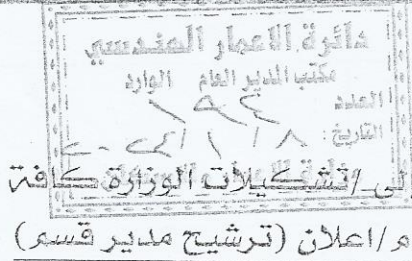 دائرة الاعمار الهندسي
مكتب المدير العام الوارد
العدد
التاريخ:
الى/تشكيلات الوزارة كافة
م/اعلان (ترشيح مدير قسم)